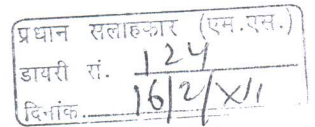 प्रधान सलाहकार (एम.एस.)
डायरी सं. 124
दिनांक. 16/2/XII